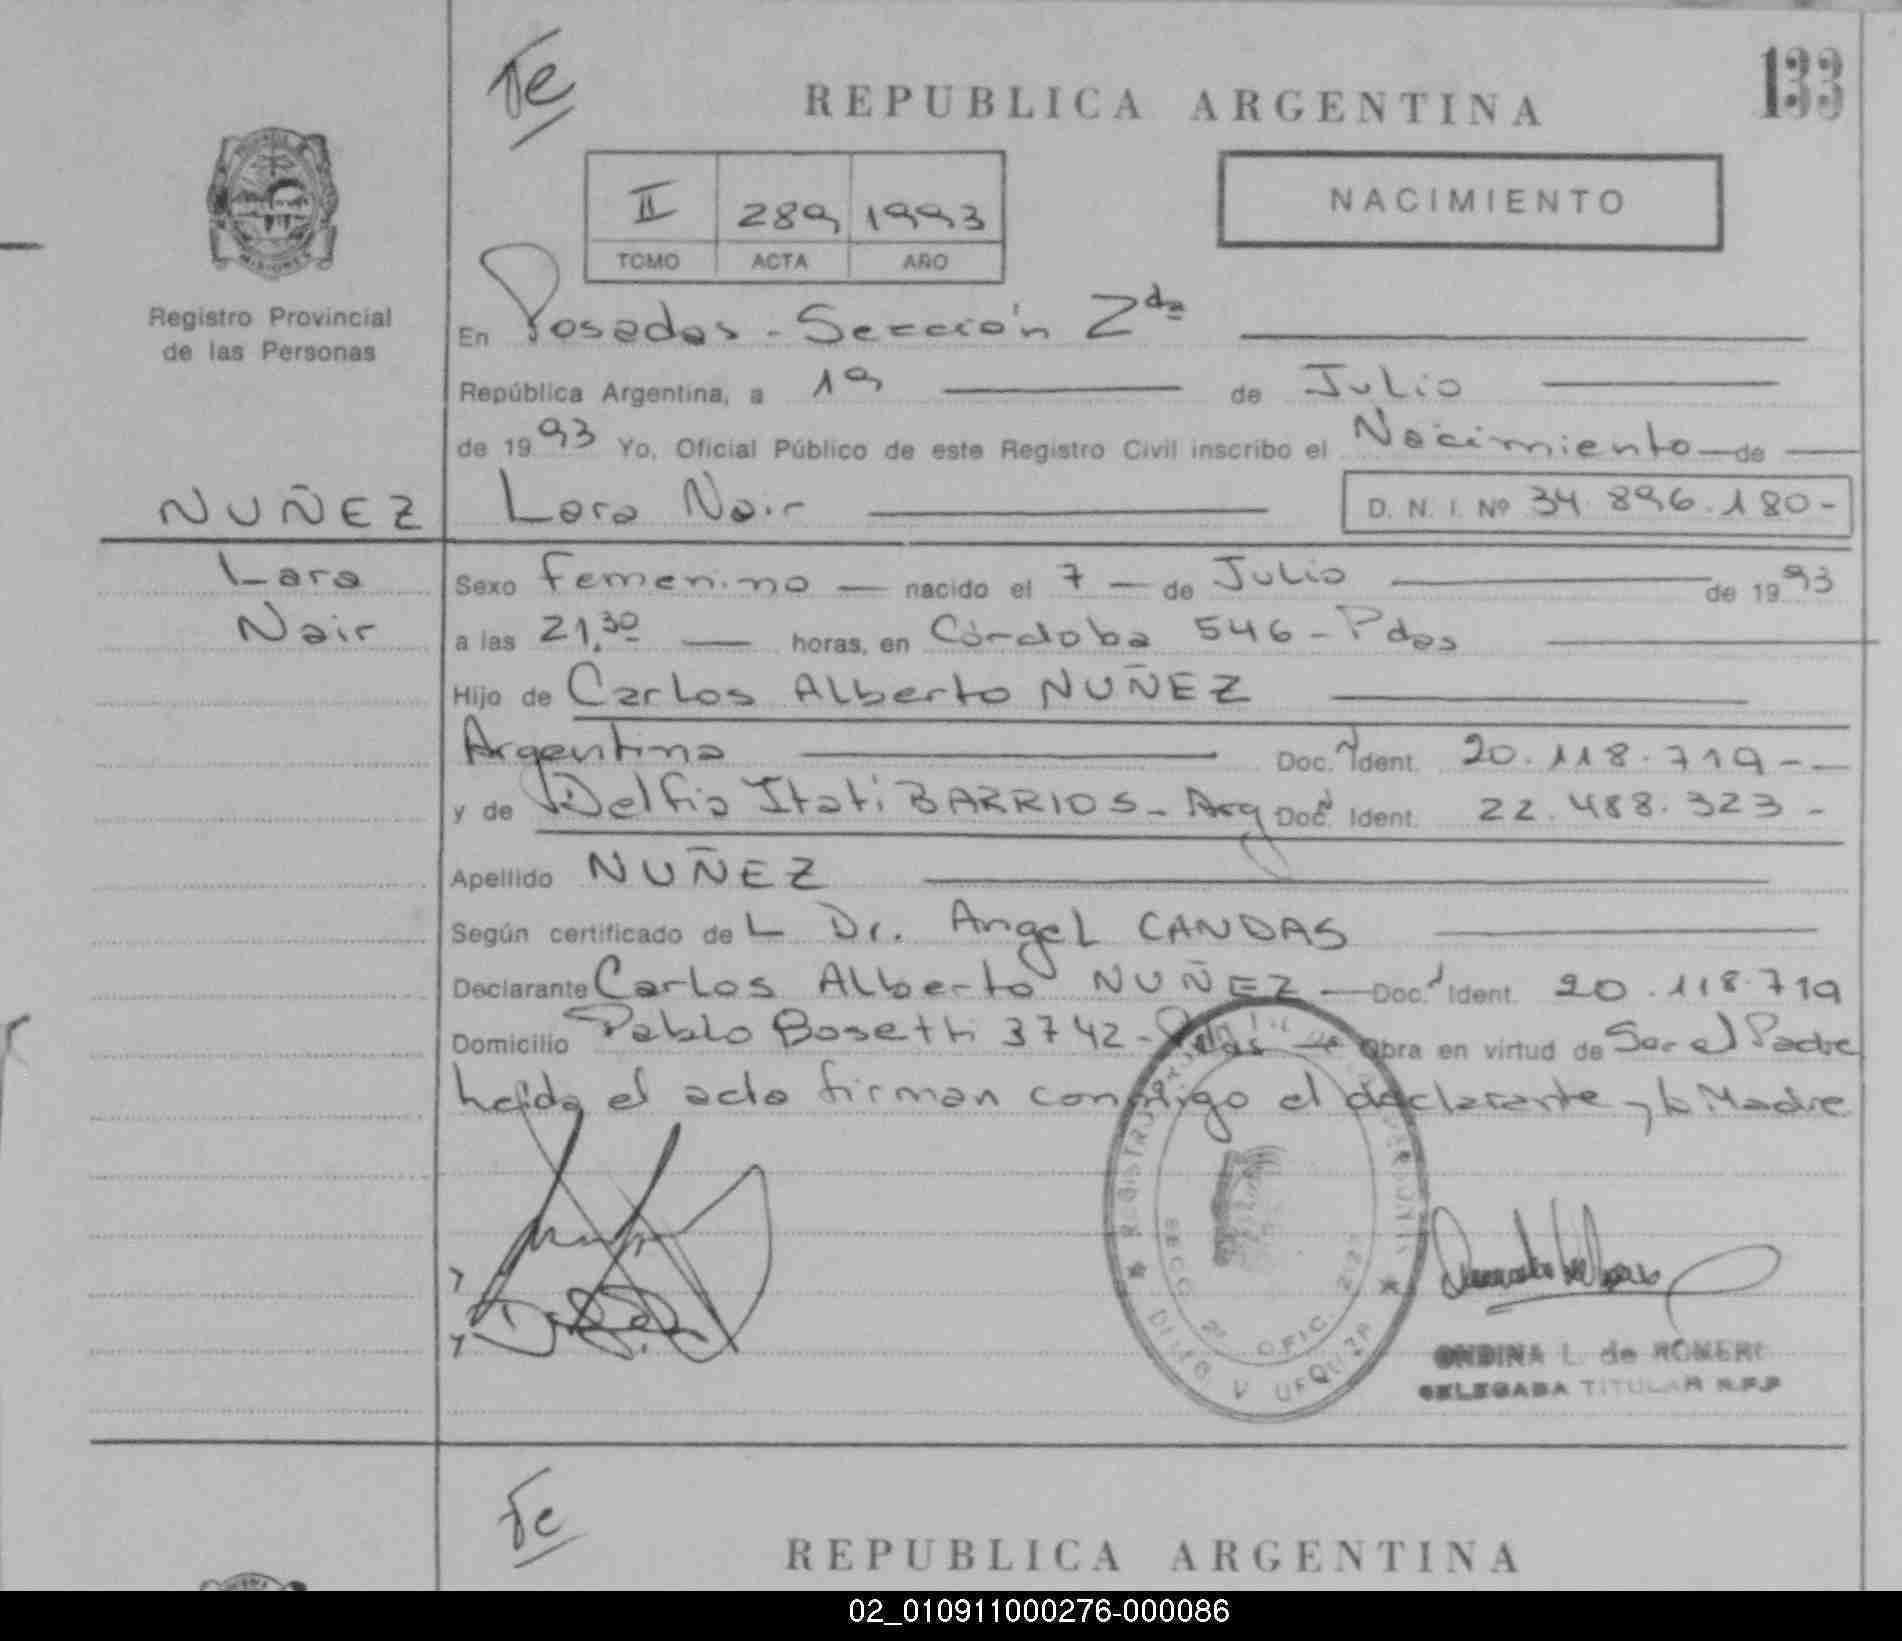 Fe
REPUBLICA ARGENTINA
133
II 289 1993
TOMO ACTA AÑO
NACIMIENTO
MISIONES
Registro Provincial
de las Personas
En Posadas - Sección 2da
República Argentina, a 19 de Julio
de 1993 Yo, Oficial Público de este Registro Civil inscribo el Nacimiento de
NUÑEZ Lara Nair D. N. I. Nº 34.896.180-
Lara
Nair
Sexo Femenino nacido el 7 de Julio de 1993
a las 21,30 horas, en Córdoba 546 - Pdas
Hijo de Carlos Alberto NUÑEZ
Argentina Doc. Ident. 20.118.719--
y de Delfia Itati BARRIOS - Arg Doc. Ident. 22.488.323-
Apellido NUÑEZ
Según certificado de L Dr. Angel CANDAS
Declarante Carlos Alberto NUÑEZ Doc. Ident. 20.118.719
Domicilio Pablo Bosetti 3742 - Pdas Obra en virtud de Ser el Padre
Leida el acta firman conmigo el declarante y la Madre
REGISTRO PROVINCIAL DE LAS PERSONAS
SECC 2ª OFIC. 2:21
ONDINA L. de ROMERO
DELEGADA TITULAR R.P.P
Fe
REPUBLICA ARGENTINA
02_010911000276-000086